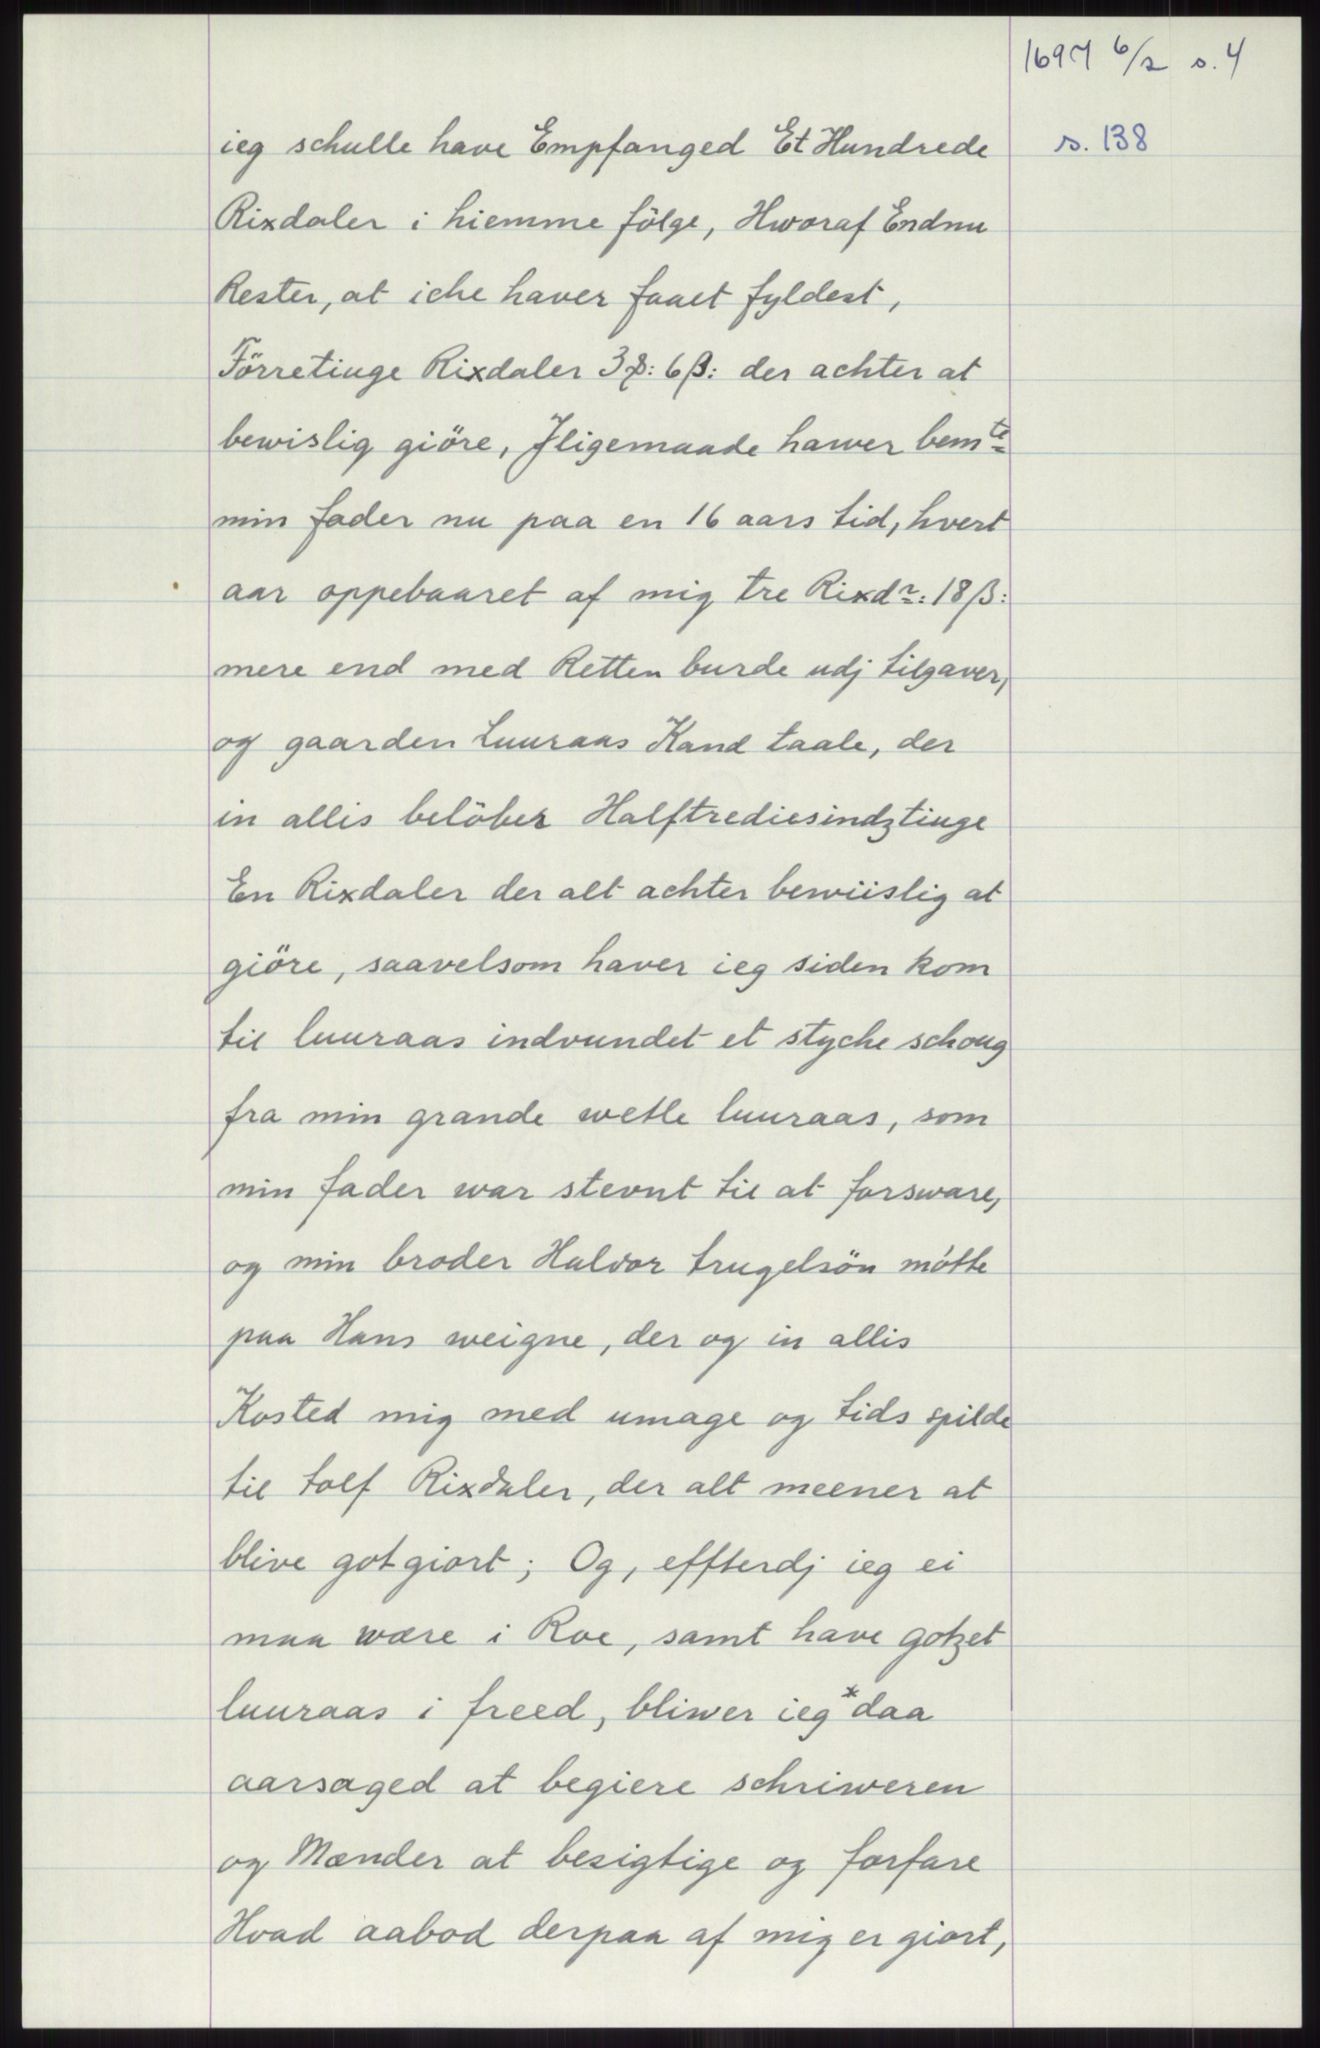 1697 6/2 s. 4
s. 138
ieg schulle have Empfanged Et Hundrede
Rixdaler i hiemme fölge, Hworaf Endnu
Rester, at iche haver faaet fyldest,
Förretiuge Rixdaler 3 ß: der achter at
bewislig giöre, Jligemaade hawer bemte
min fader nu paa en 16 aars tid, hvert
aar oppebaaret af mig tre Rixdr: 18 ß:
mere end med Retten burde udj tilgaver,
og gaarden Luuraas Kand taale, der
in allis belöber Halftrediesindztiuge
En Rixdaler der alt achter bewiislig at
giöre, saavelsom haver ieg siden kom
til luuraas indvundet et styche schoug
fra min grande wetle luuraas, som
min fader war stevnt til at forsware,
og min broder Halvor trugelsön mótte
paa Hans weigne, der og in allis
Kosted mig med umage og tids spilde
til tolf Rixdaler, der alt meener at
blive got giort; Og, effterdj ieg ei
maa wære i Roe, samt have gotzet
luuraas i freed, bliwer ieg *daa
aarsaged at begiere schriweren
og Mænder at besigtige og forfare
Hvad aabod derpaa af mig er giort,